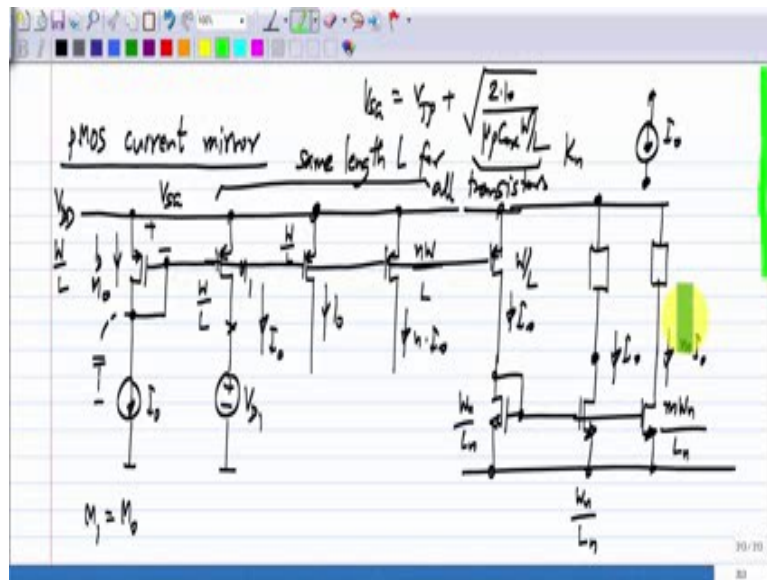 pMOS current mirror
V_SG = V_Tp + √(2·I₀ / μp Cox W/L)
same length L for all transistors
Kn
I₀
V_DD
V_SG
+
-
W/L
M₀
W/L
M₁
I₀
W/L
I₀
nW/L
n·I₀
W/L
I₀
I₀
I₀
I₀
V_D1
Wn/Ln
Wn/Ln
mWn/Ln
M₁ = M₀